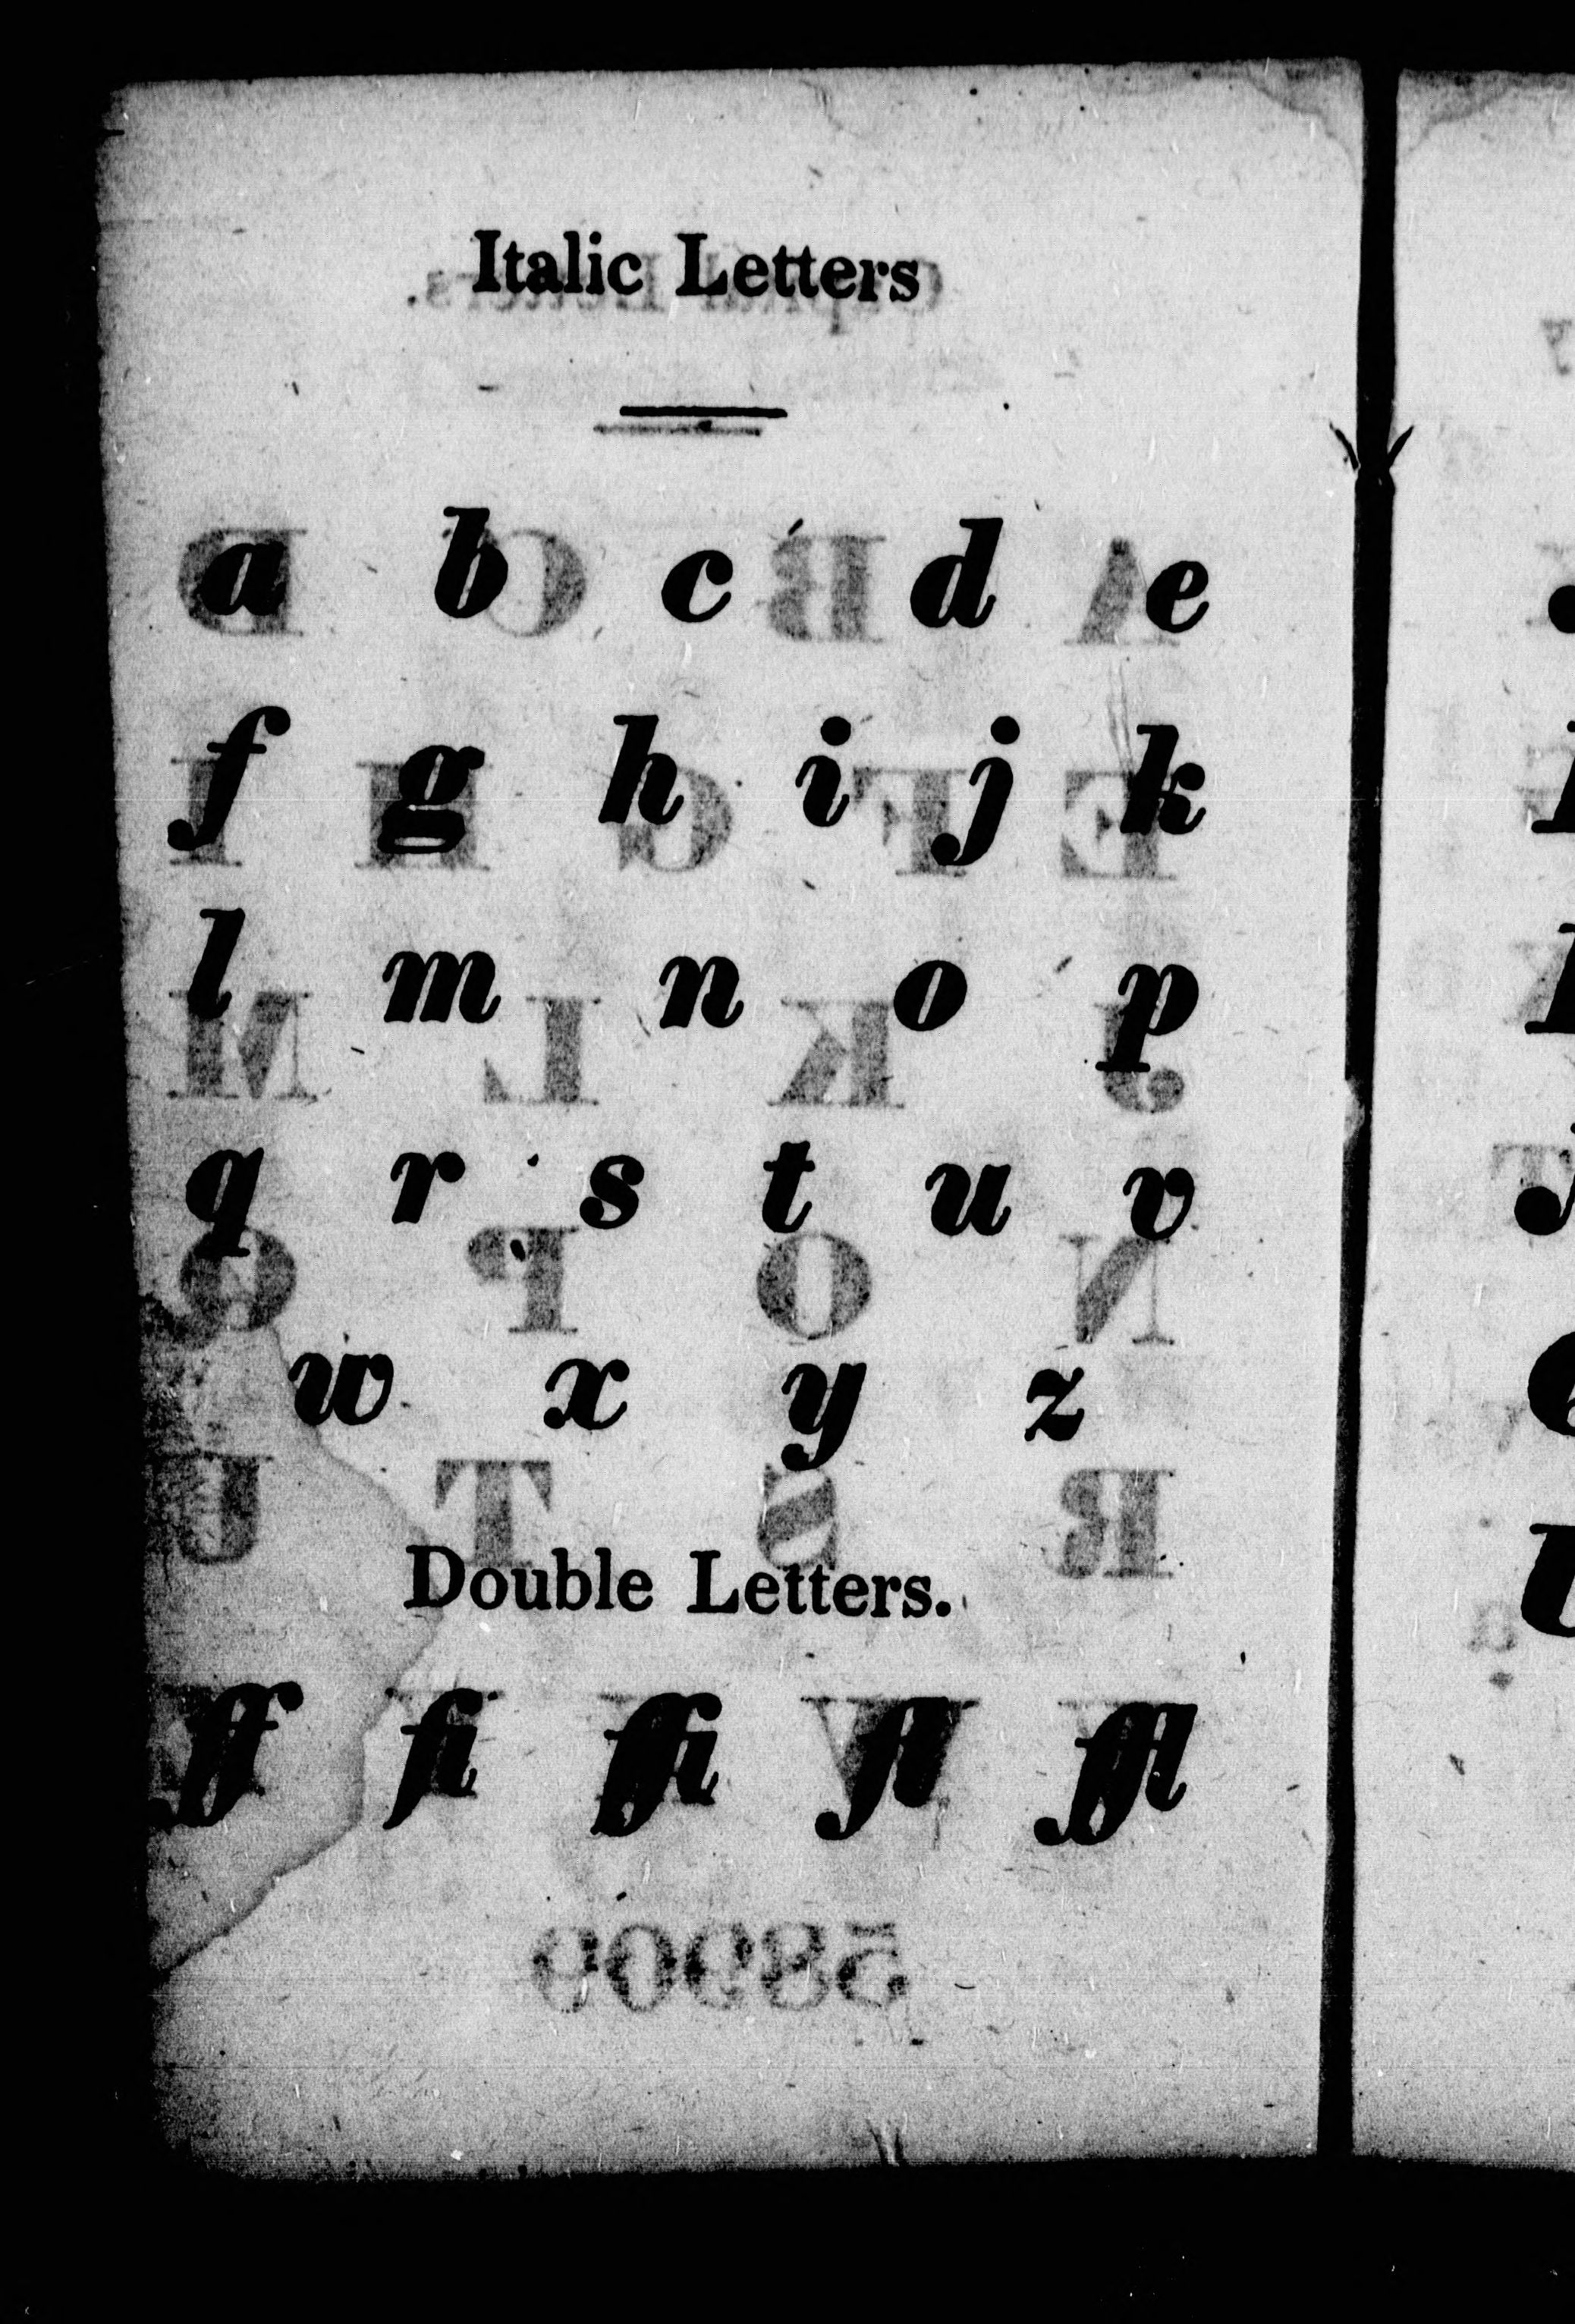 Italic Letters
a b c d e
f g h i j k
l m n o p
q r s t u v
w x y z
Double Letters.
ff fi ffi fl ffl